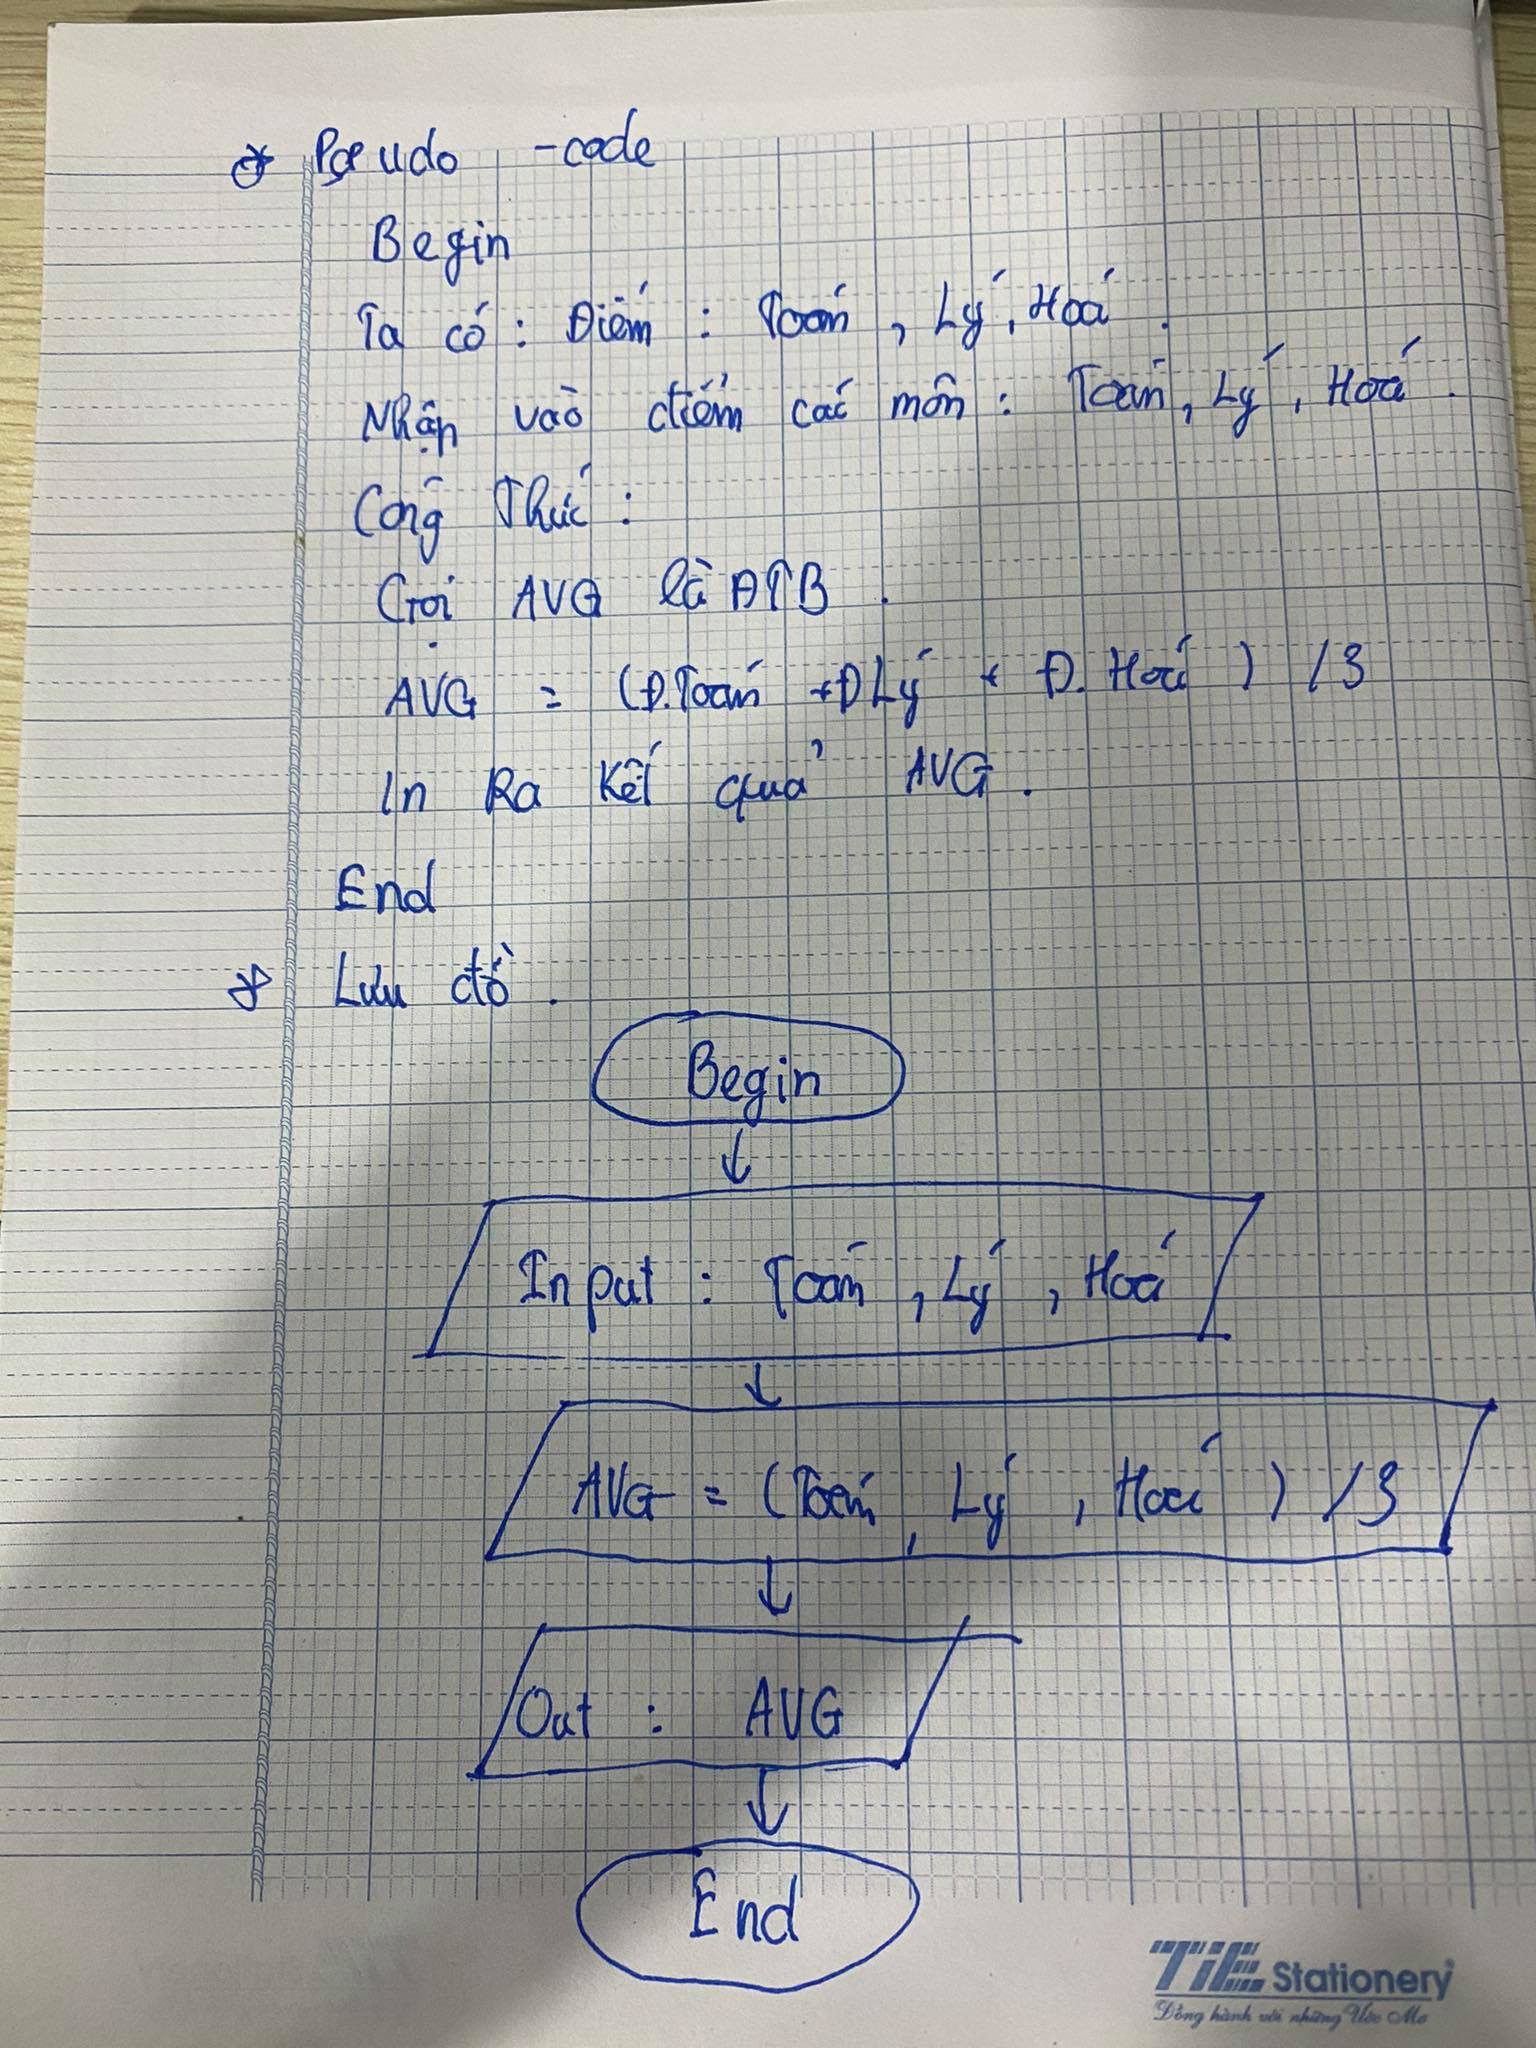 Pseudo - code
Begin
Ta có : Điểm : Toán , Lý , Hoá .
Nhập vào điểm các môn : Toán , Lý , Hoá .
Công Thức :
Gọi AVG là ĐTB .
AVG = (Đ.Toán + Đ Lý + Đ. Hoá ) /3
In Ra Kết quả AVG .
End
Lưu đồ .
Begin
Input : Toán , Lý , Hoá
AVG = (Toán , Lý , Hoá ) /3
Out : AVG
End
TiE Stationery
Đồng hành với những Ước Mơ